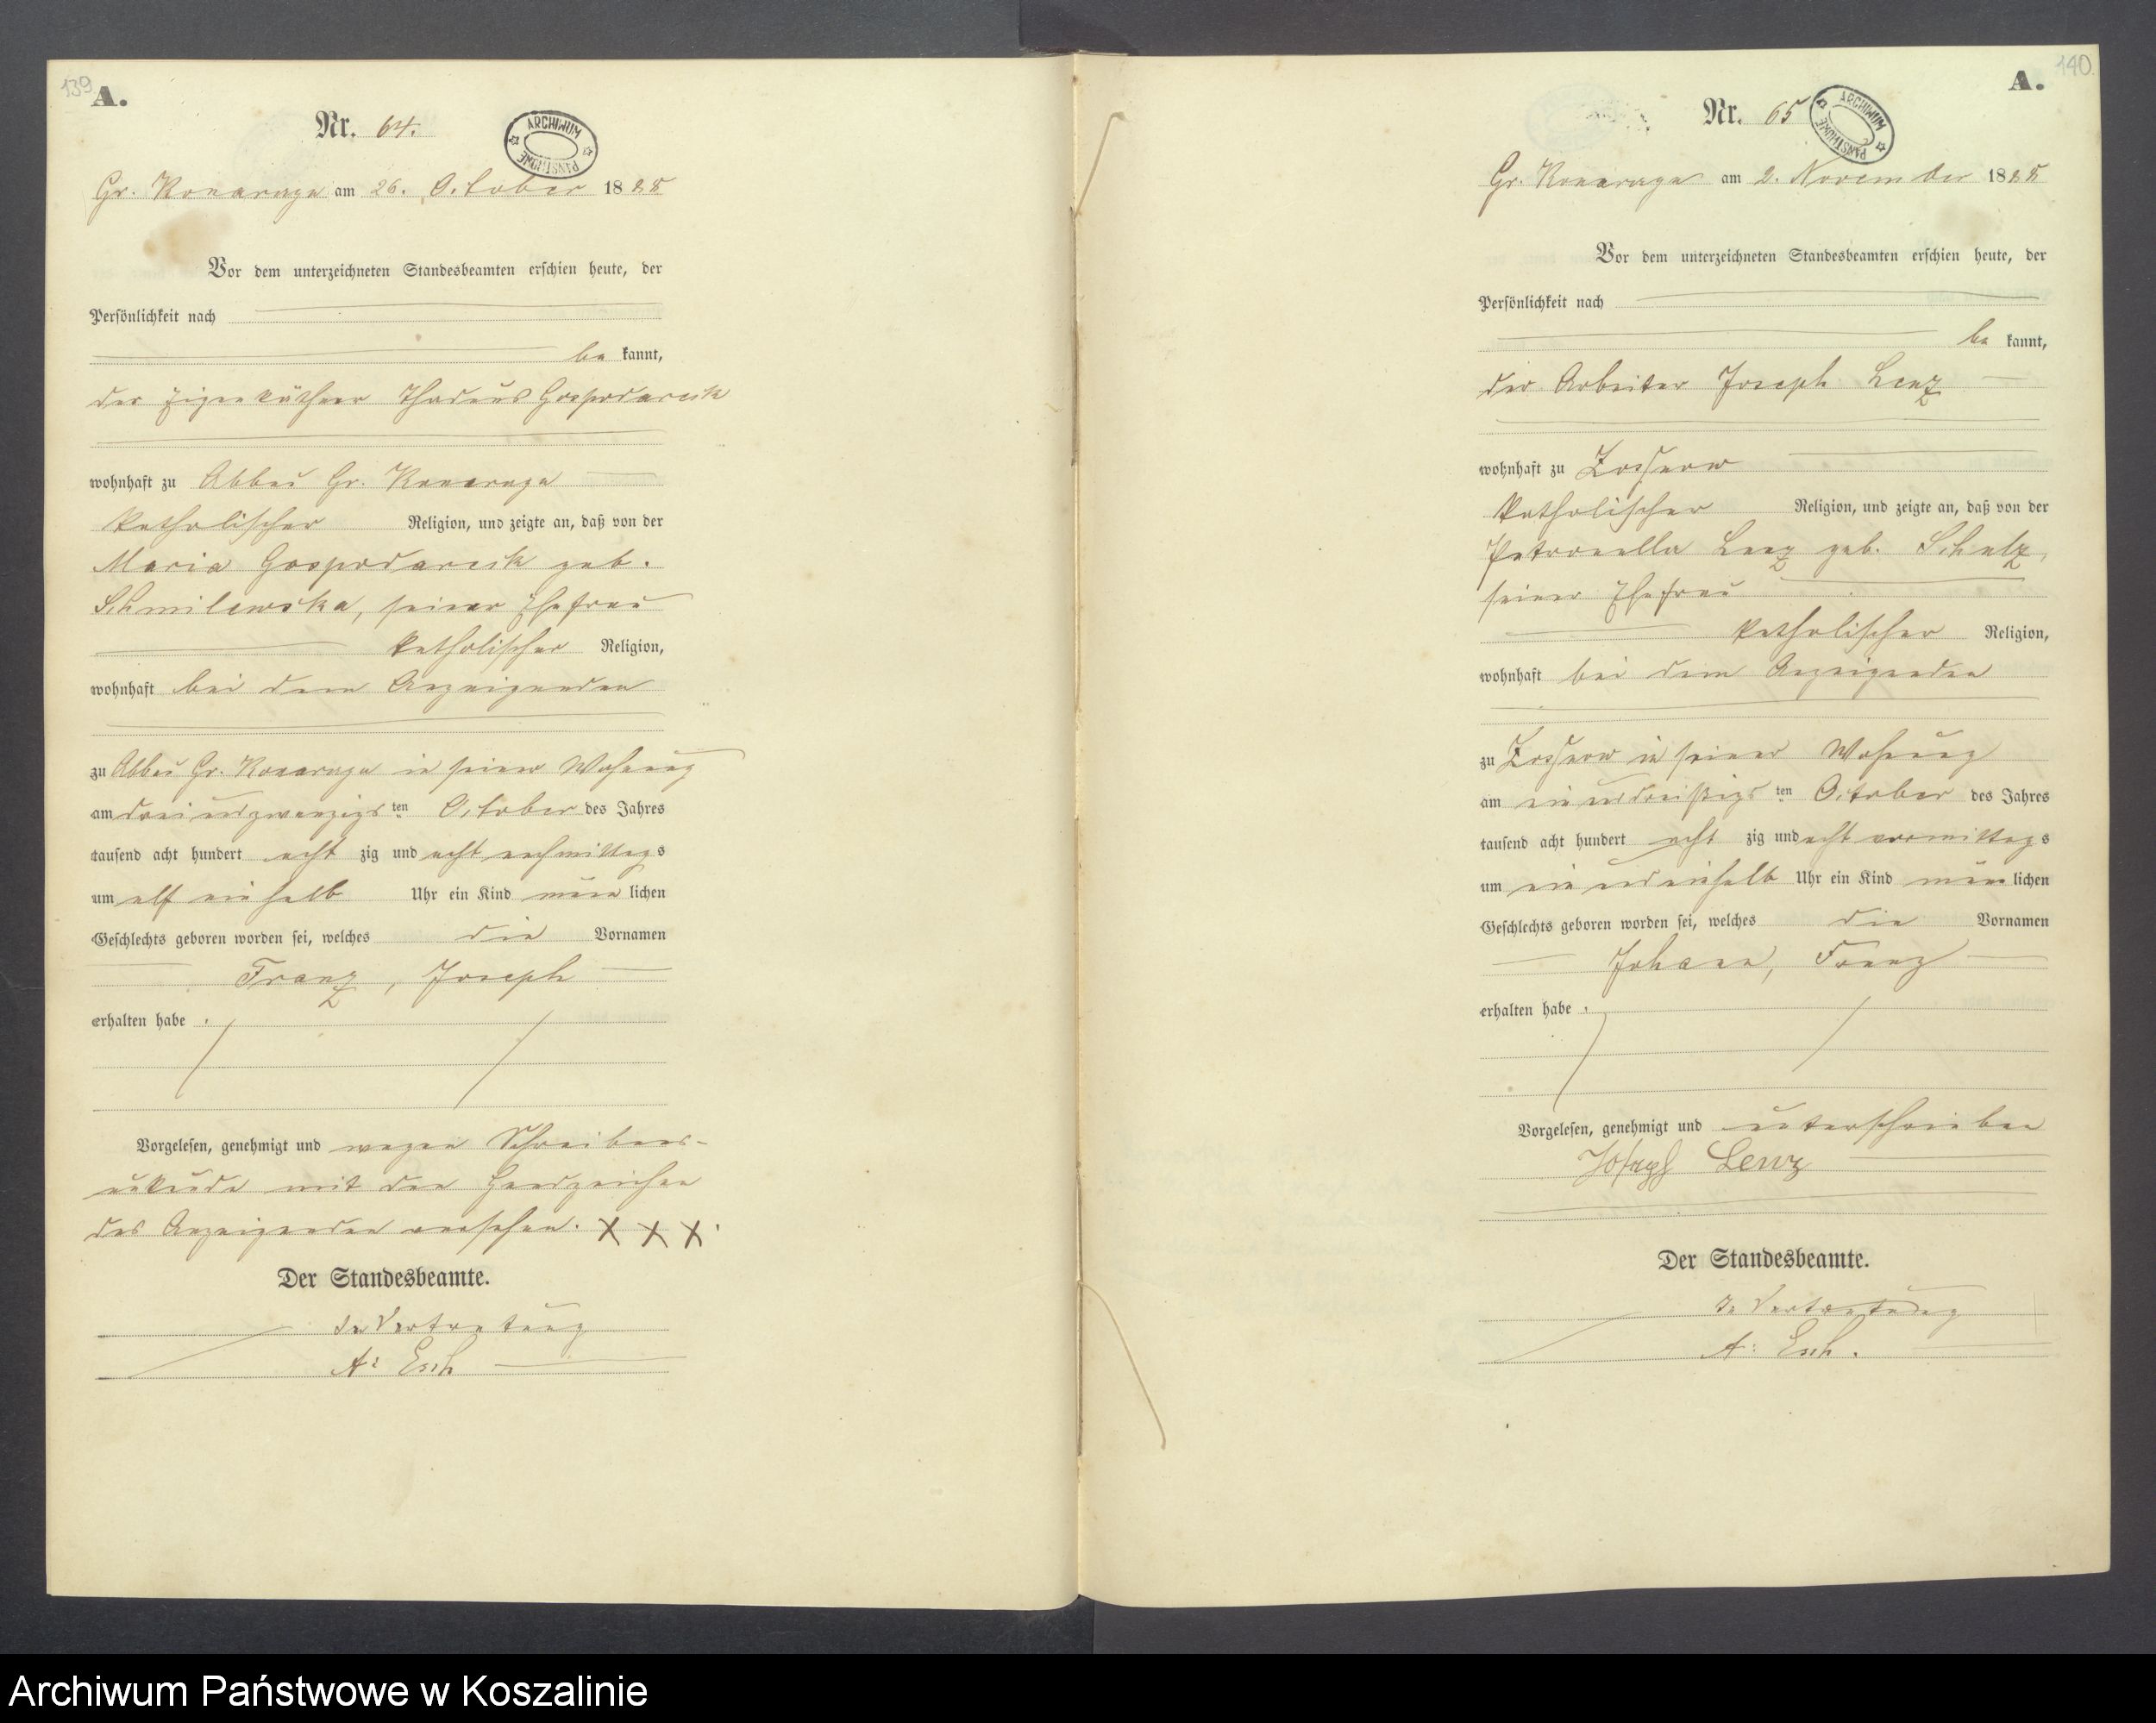 139
A.
Nr. 64.
ARCHIWUM PAŃSTWOWE
Gr. Konarzyn am 26. October 1888
Vor dem unterzeichneten Standesbeamten erschien heute, der
Persönlichkeit nach
be kannt,
der Eigenkäthner Thadeus Gospodarcik
wohnhaft zu Abbau Gr. Konarzyn
katholischer Religion, und zeigte an, daß von der
Maria Gospodarcik geb.
Schmilewska, seiner Ehefrau
katholischer Religion,
wohnhaft bei dem Anzeigenden
zu Abbau Gr. Konarzyn in seiner Wohnung
am dreiundzwanzigs ten October des Jahres
tausend acht hundert acht zig und acht nachmittags
um elf ein halb Uhr ein Kind män lichen
Geschlechts geboren worden sei, welches die Vornamen
Franz, Joseph
erhalten habe.
Vorgelesen, genehmigt und wegen Schreibens-
unkunde mit den Handzeichen
des Anzeigenden versehen. X X X.
Der Standesbeamte.
In Vertretung
A: Esch
140
A.
Nr. 65
ARCHIWUM PAŃSTWOWE
Gr. Konarzyn am 2. November 1888
Vor dem unterzeichneten Standesbeamten erschien heute, der
Persönlichkeit nach
be kannt,
der Arbeiter Joseph Lenz
wohnhaft zu
katholischer Religion, und zeigte an, daß von der
Petronella Lenz geb. Schulz,
seiner Ehefrau
katholischer Religion,
wohnhaft bei dem Anzeigenden
zu in seiner Wohnung
am einunddreißigs ten October des Jahres
tausend acht hundert acht zig und acht vormittags
um ein und einhalb Uhr ein Kind män lichen
Geschlechts geboren worden sei, welches die Vornamen
Johann, Franz
erhalten habe.
Vorgelesen, genehmigt und unterschrieben
Joseph Lenz
Der Standesbeamte.
In Vertretung
A: Esch.
Archiwum Państwowe w Koszalinie